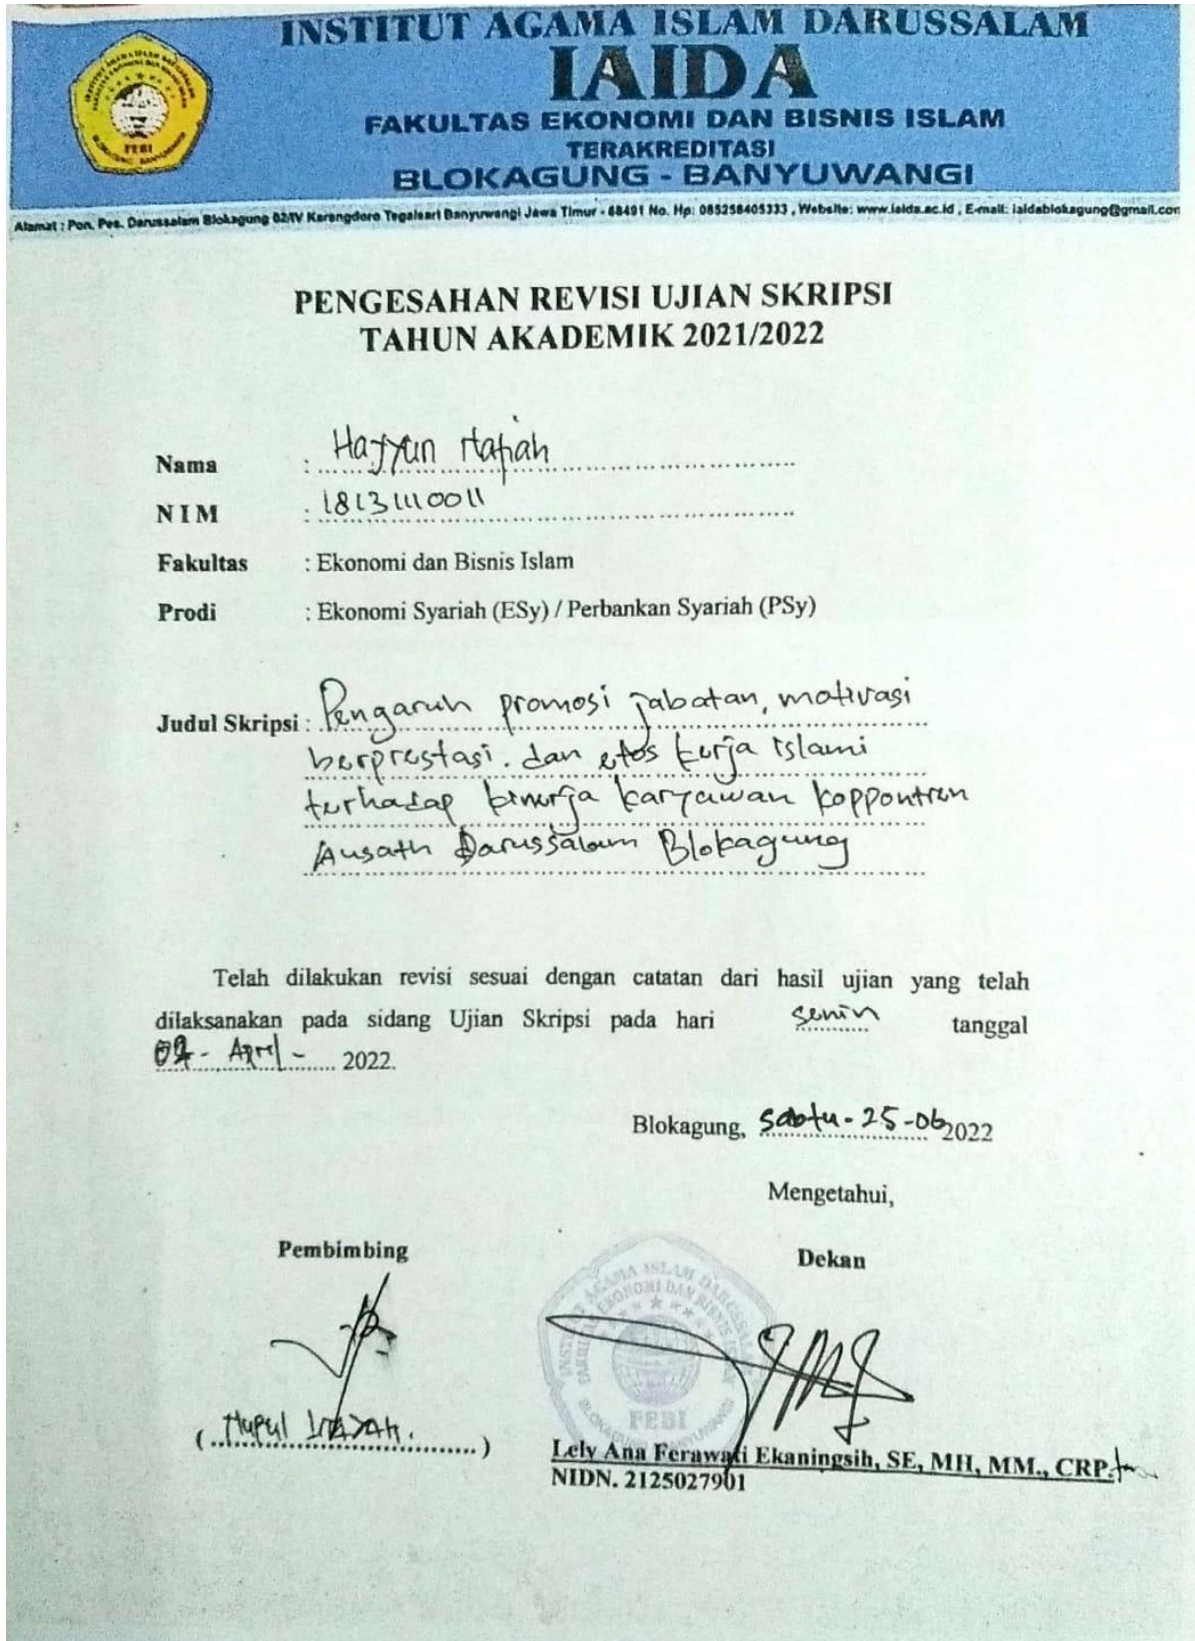 INSTITUT AGAMA ISLAM DARUSSALAM
IAIDA
FAKULTAS EKONOMI DAN BISNIS ISLAM
TERAKREDITASI
BLOKAGUNG - BANYUWANGI
FEBI
Alamat : Pon. Pes. Darussalam Blokagung 02/IV Karangdoro Tegalsari Banyuwangi Jawa Timur - 68491 No. Hp: 085258405333 , Website: www.iaida.ac.id , E-mail: iaidablokagung@gmail.com
PENGESAHAN REVISI UJIAN SKRIPSI
TAHUN AKADEMIK 2021/2022
Nama : Hayyun
NIM : 18131110011
Fakultas : Ekonomi dan Bisnis Islam
Prodi : Ekonomi Syariah (ESy) / Perbankan Syariah (PSy)
Judul Skripsi : Pengaruh promosi jabatan, motivasi
berprestasi. dan etos kerja islami
terhadap kinerja karyawan koppontren
Ausath Darussalam Blokagung
Telah dilakukan revisi sesuai dengan catatan dari hasil ujian yang telah
dilaksanakan pada sidang Ujian Skripsi pada hari senin tanggal
April - 2022.
Blokagung, Sabtu - 25 - 06 2022
Mengetahui,
Pembimbing
Dekan
FEBI
( Nupul INAYAH. )
Lely Ana Ferawati Ekaningsih, SE, MH, MM., CRP.
NIDN. 2125027901